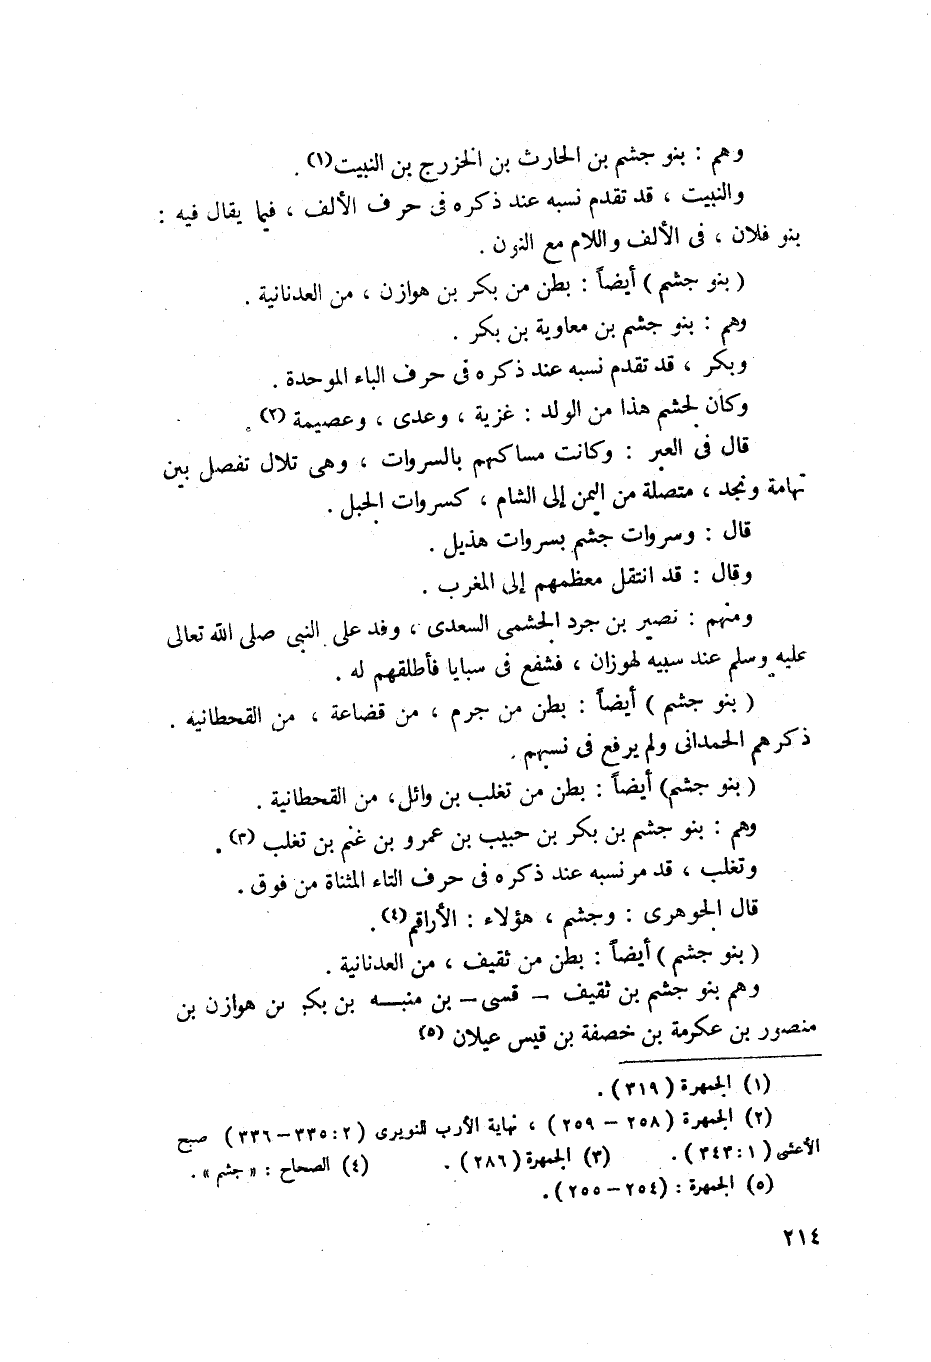 وهم : بنو جشم بن الحارث بن الخزرج بن النبيت(١) .
والنبيت ، قد تقدم نسبه عند ذكره فى حرف الألف ، فيما يقال فيه :
بنو فلان ، فى الألف واللام مع النون .
( بنو جشم ) أيضاً : بطن من بكر بن هوازن ، من العدنانية .
وهم : بنو جشم بن معاوية بن بكر .
وبكر ، قد تقدم نسبه عند ذكره فى حرف الباء الموحدة .
وكان لجشم هذا من الولد : غزية ، وعدى ، وعصيمة (٢) .
قال فى العبر : وكانت مساكنهم بالسروات ، وهى تلال تفصل بين
تهامة ونجد ، متصلة من اليمن إلى الشام ، كسروات الجبل .
قال : وسروات جشم بسروات هذيل .
وقال : قد انتقل معظمهم إلى المغرب .
ومنهم : نصير بن جرد الجشمى السعدى ، وفد على النبى صلى الله تعالى
عليه وسلم عند سبيه لهوزان ، فشفع فى سبايا فأطلقهم له .
( بنو جشم ) أيضاً : بطن من جرم ، من قضاعة ، من القحطانيه .
ذكرهم الحمدانى ولم يرفع فى نسبهم .
( بنو جشم) أيضاً : بطن من تغلب بن وائل، من القحطانية .
وهم : بنو جشم بن بكر بن حبيب بن عمرو بن غنم بن تغلب (٣) .
وتغلب ، قد مر نسبه عند ذكره فى حرف التاء المثناة من فوق .
قال الجوهرى : وجشم ، هؤلاء : الأراقم(٤) .
( بنو جشم ) أيضاً : بطن من ثقيف ، من العدنانية .
وهم بنو جشم بن ثقيف – قسى – بن منبه بن بكر بن هوازن بن
منصور بن عكرمة بن خصفة بن قيس عيلان (٥)
(١) الجمهرة ( ٣١٩ ) .
(٢) الجمهرة ( ٢٥٨ – ٢٥٩ ) ، نهاية الأرب للنويرى ( ٢ : ٣٣٥ – ٣٣٦ ) صبح
الأعشى ( ١ : ٣٤٣ ) . (٣) الجمهرة ( ٢٨٦ ) . (٤) الصحاح : « جشم » .
(٥) الجمهرة : ( ٢٥٤ – ٢٥٥ ) .
٢١٤